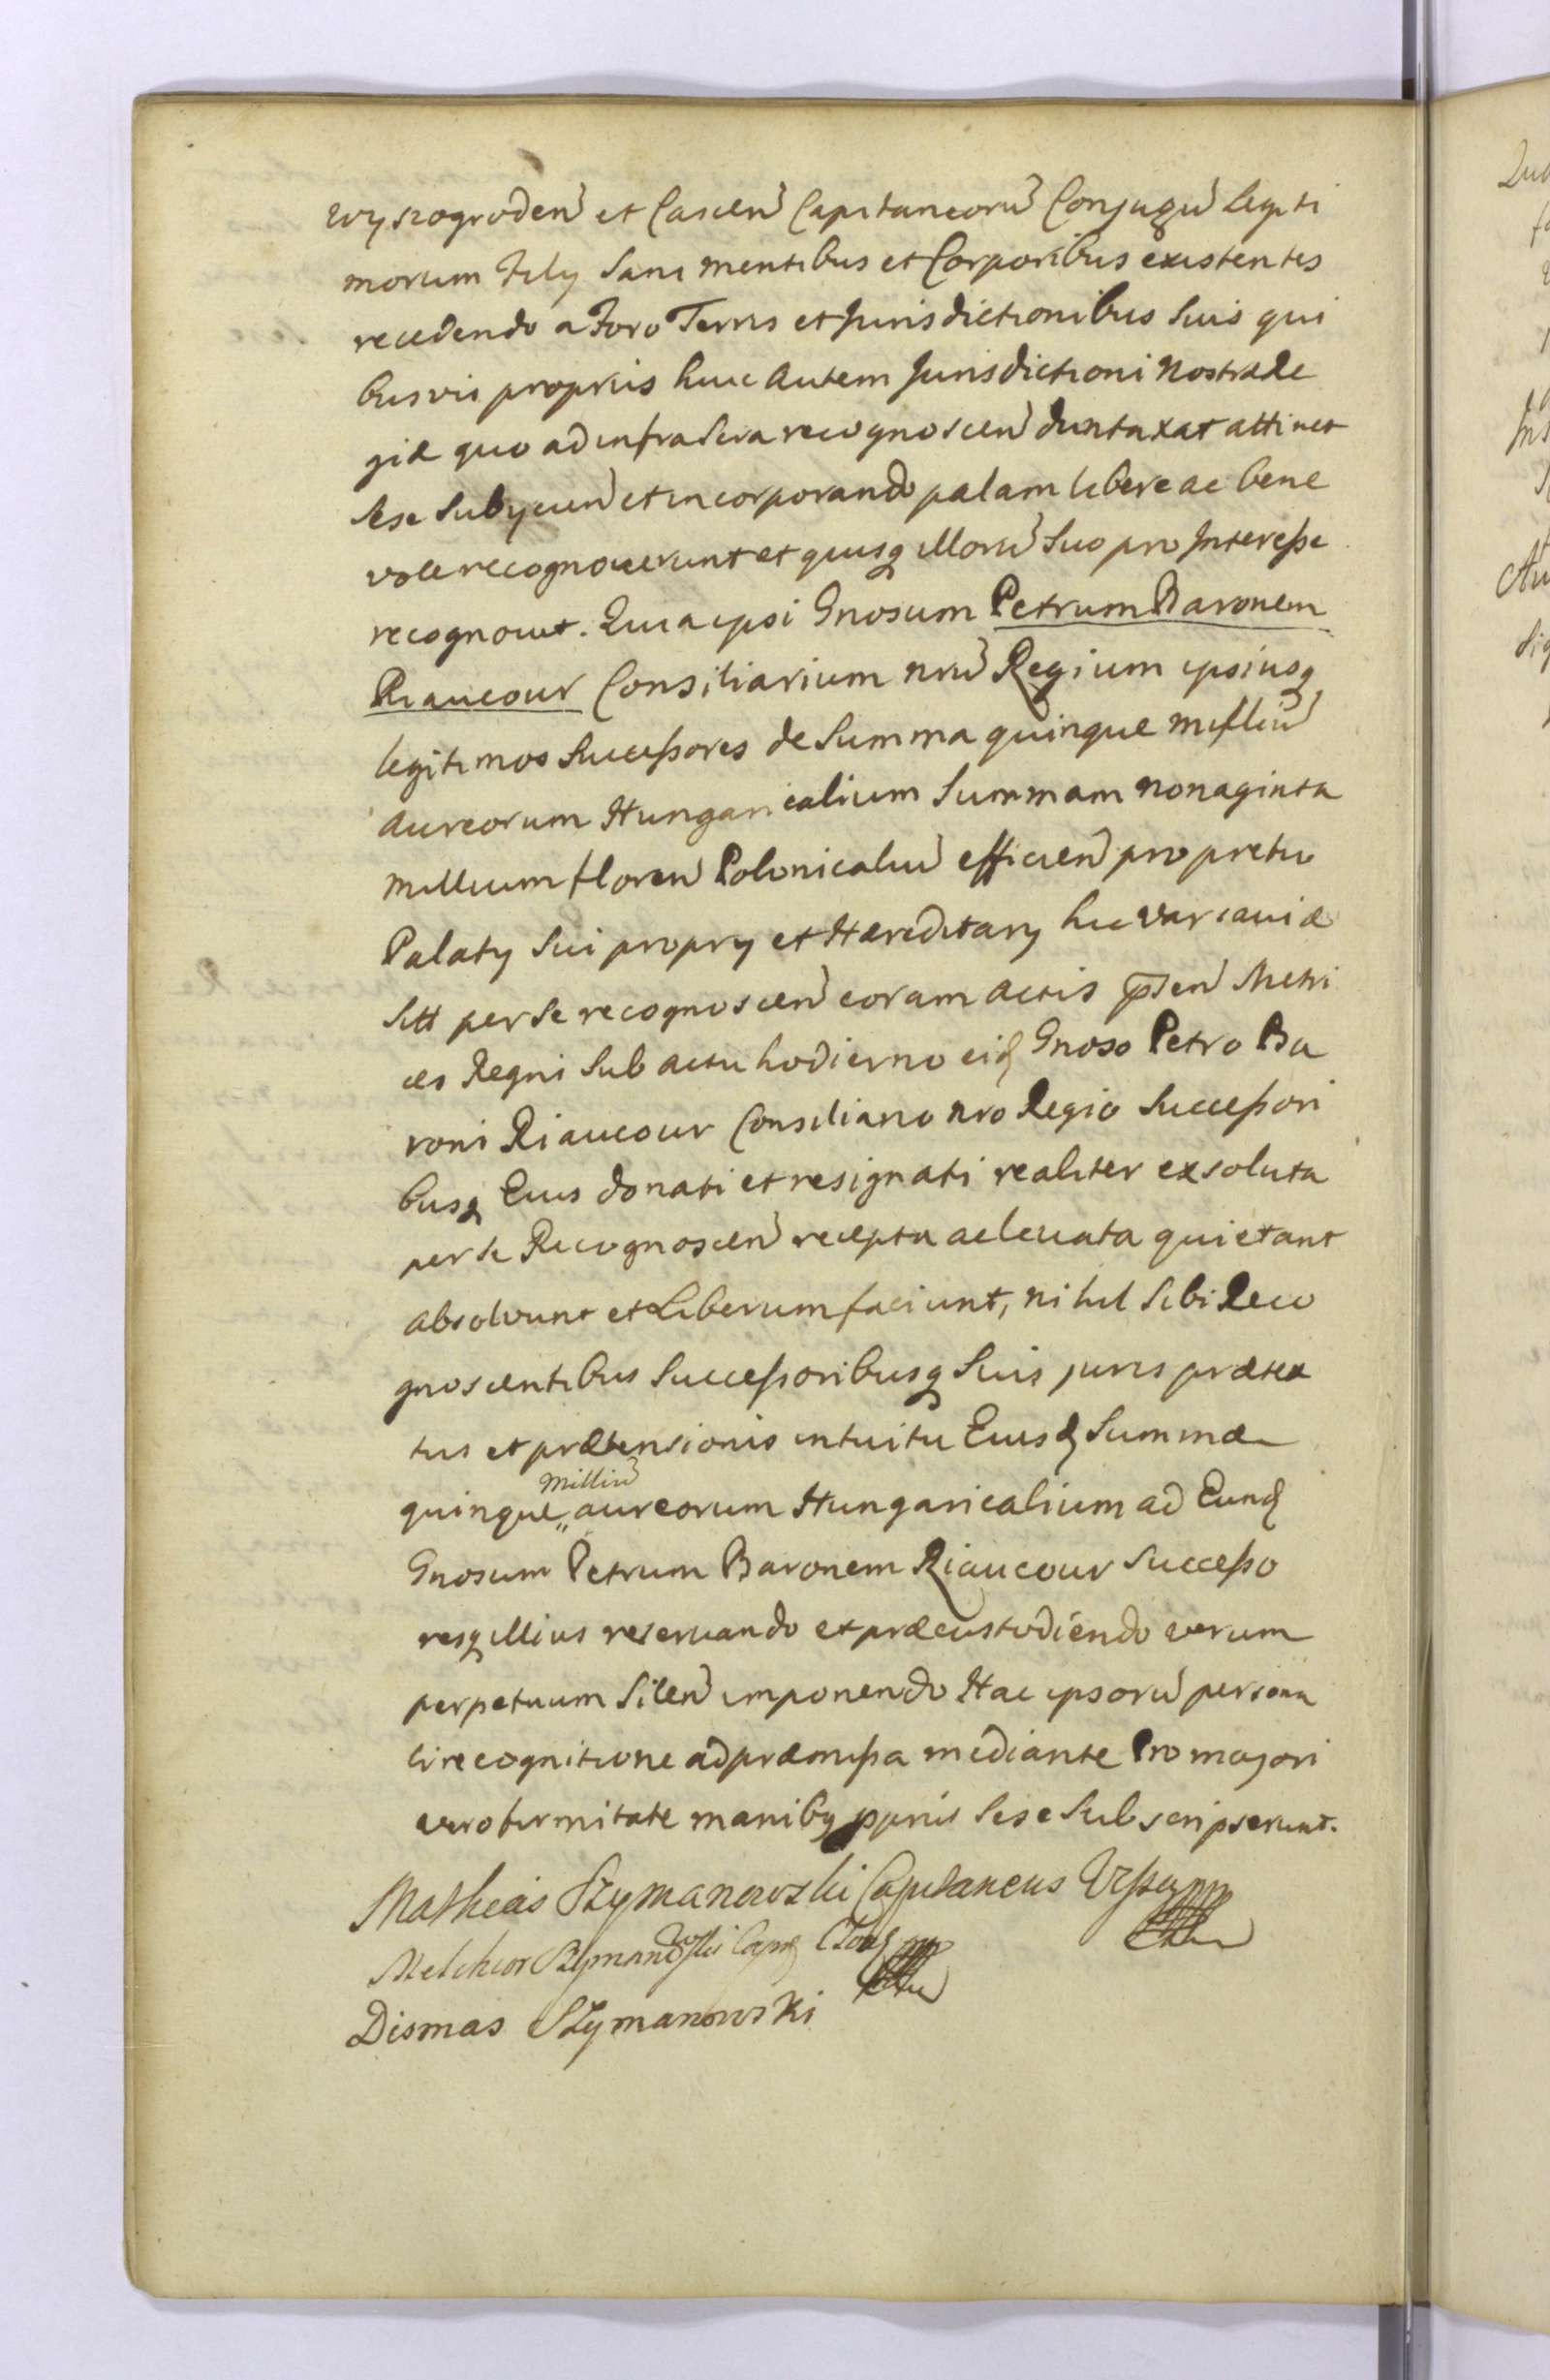 Wyszogroden et Cascen Capitaneorũ Conjugũ legiti
morum Filij Sani mentibus et Corporibus existentes
recedendo a Foro Terris et Jurisdictionibus Suis qui
busvis propriis huic autem Jurisdictioni Nostræ Re
giæ quo ad infra Scra recognoscen duntaxat attinet
sese Subijcien et incorporando palam libere ac bene
vole recognoverunt et quisq illorũ Suo pro Interesse
recognovit. Quia ipsi Gnosum Petrum Baronem
Riaucour Consiliarium nrũ Regium ipsiusq
legitimos Successores de Summa quinque milliũ
aureorum Hungaricalium Summam nonaginta
millium floren Polonicaliũ efficien pro pretio
Palatij Sui proprij et Hæreditarij hic Varsaviæ
Sitt per Se recognoscen coram actis pñten Metri
ces Regni Sub actu hodierno eid Gnoso Petro Ba
roni Riaucour Consiliario nro Regio Successori
busq Eius donati et resignati realiter exsoluta
per Se Recognoscen recepta ac levata quietant
absolvunt et Liberum faciunt, nihil Sibi Reco
gnoscentibus Successoribusq Suis juris prætex
tus et prætensionis intuitu Eiusd Summæ
quinque „ milliũ aureorum Hungaricalium ad Eund
Gnosum Petrum Baronem Riaucour Successo
resq illius reservando et præcustodiendo verum
perpetuum Silen imponendo Hac ipsorũ persona
li recognitione ad præmissa mediante Pro majori
vero firmitate manibq pprijs Sese Subscripserunt.
Matheas Szymanowski Capitaneus
Melchior Szymanowski Capnq
Dismas Szymanowski